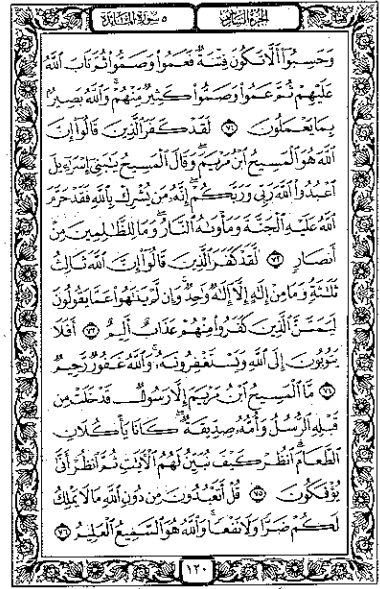 الجزء السادس
٥ سورة المائدة
وَحَسِبُوٓا۟ أَلَّا تَكُونَ فِتْنَةٌ فَعَمُوا۟ وَصَمُّوا۟ ثُمَّ تَابَ ٱللَّهُ
عَلَيْهِمْ ثُمَّ عَمُوا۟ وَصَمُّوا۟ كَثِيرٌ مِّنْهُمْ وَٱللَّهُ بَصِيرٌۢ
بِمَا يَعْمَلُونَ ٧١ لَقَدْ كَفَرَ ٱلَّذِينَ قَالُوٓا۟ إِنَّ
ٱللَّهَ هُوَ ٱلْمَسِيحُ ٱبْنُ مَرْيَمَ وَقَالَ ٱلْمَسِيحُ يَٰبَنِىٓ إِسْرَٰٓءِيلَ
ٱعْبُدُوا۟ ٱللَّهَ رَبِّى وَرَبَّكُمْ إِنَّهُۥ مَن يُشْرِكْ بِٱللَّهِ فَقَدْ حَرَّمَ
ٱللَّهُ عَلَيْهِ ٱلْجَنَّةَ وَمَأْوَىٰهُ ٱلنَّارُ وَمَا لِلظَّٰلِمِينَ مِنْ
أَنصَارٍ ٧٢ لَّقَدْ كَفَرَ ٱلَّذِينَ قَالُوٓا۟ إِنَّ ٱللَّهَ ثَالِثُ
ثَلَٰثَةٍ وَمَا مِنْ إِلَٰهٍ إِلَّآ إِلَٰهٌ وَٰحِدٌ وَإِن لَّمْ يَنتَهُوا۟ عَمَّا يَقُولُونَ
لَيَمَسَّنَّ ٱلَّذِينَ كَفَرُوا۟ مِنْهُمْ عَذَابٌ أَلِيمٌ ٧٣ أَفَلَا
يَتُوبُونَ إِلَى ٱللَّهِ وَيَسْتَغْفِرُونَهُۥ وَٱللَّهُ غَفُورٌ رَّحِيمٌ
٧٤ مَّا ٱلْمَسِيحُ ٱبْنُ مَرْيَمَ إِلَّا رَسُولٌ قَدْ خَلَتْ مِن
قَبْلِهِ ٱلرُّسُلُ وَأُمُّهُۥ صِدِّيقَةٌ كَانَا يَأْكُلَانِ
ٱلطَّعَامَ ٱنظُرْ كَيْفَ نُبَيِّنُ لَهُمُ ٱلْءَايَٰتِ ثُمَّ ٱنظُرْ أَنَّىٰ
يُؤْفَكُونَ ٧٥ قُلْ أَتَعْبُدُونَ مِن دُونِ ٱللَّهِ مَا لَا يَمْلِكُ
لَكُمْ ضَرًّا وَلَا نَفْعًا وَٱللَّهُ هُوَ ٱلسَّمِيعُ ٱلْعَلِيمُ ٧٦
١٢٠